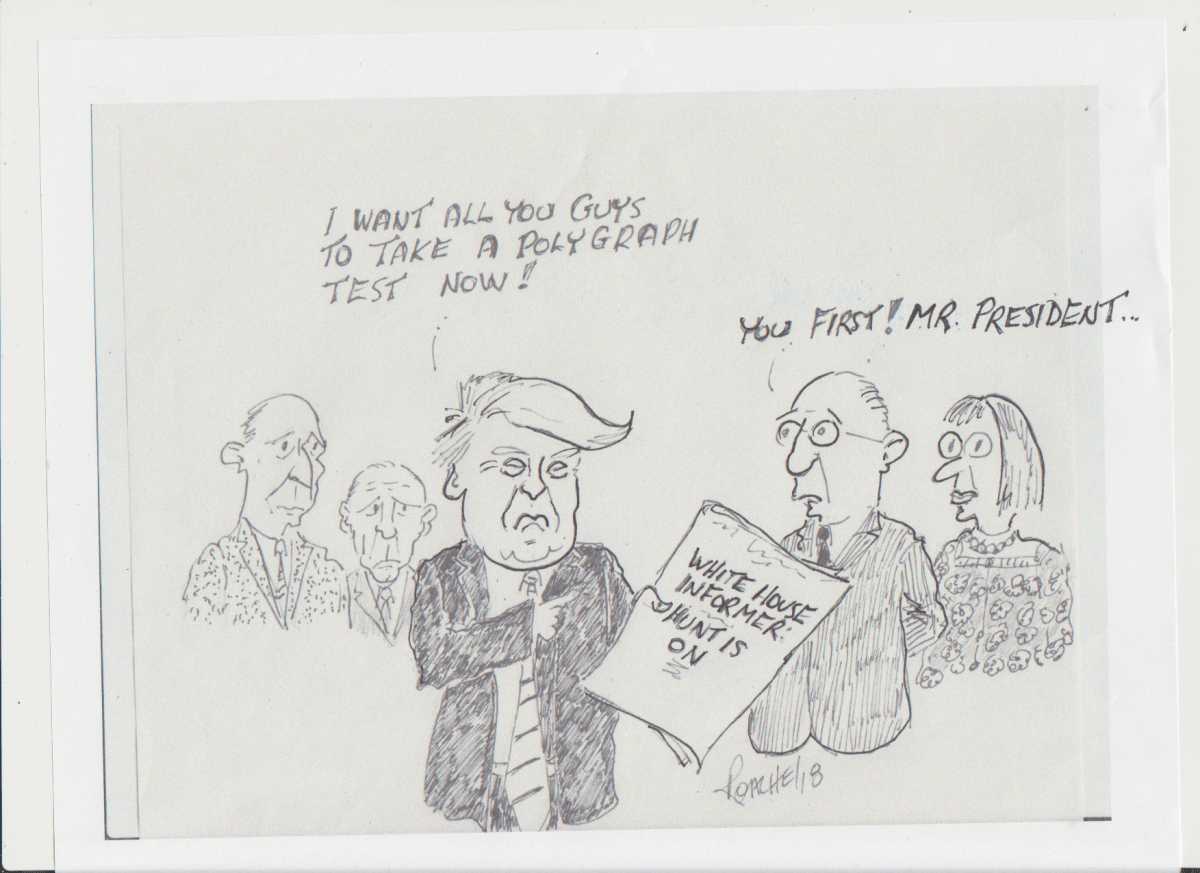 I WANT ALL YOU GUYS
TO TAKE A POLYGRAPH
TEST NOW!
YOU FIRST! MR. PRESIDENT...
WHITE HOUSE
INFORMER:
HUNT IS
ON